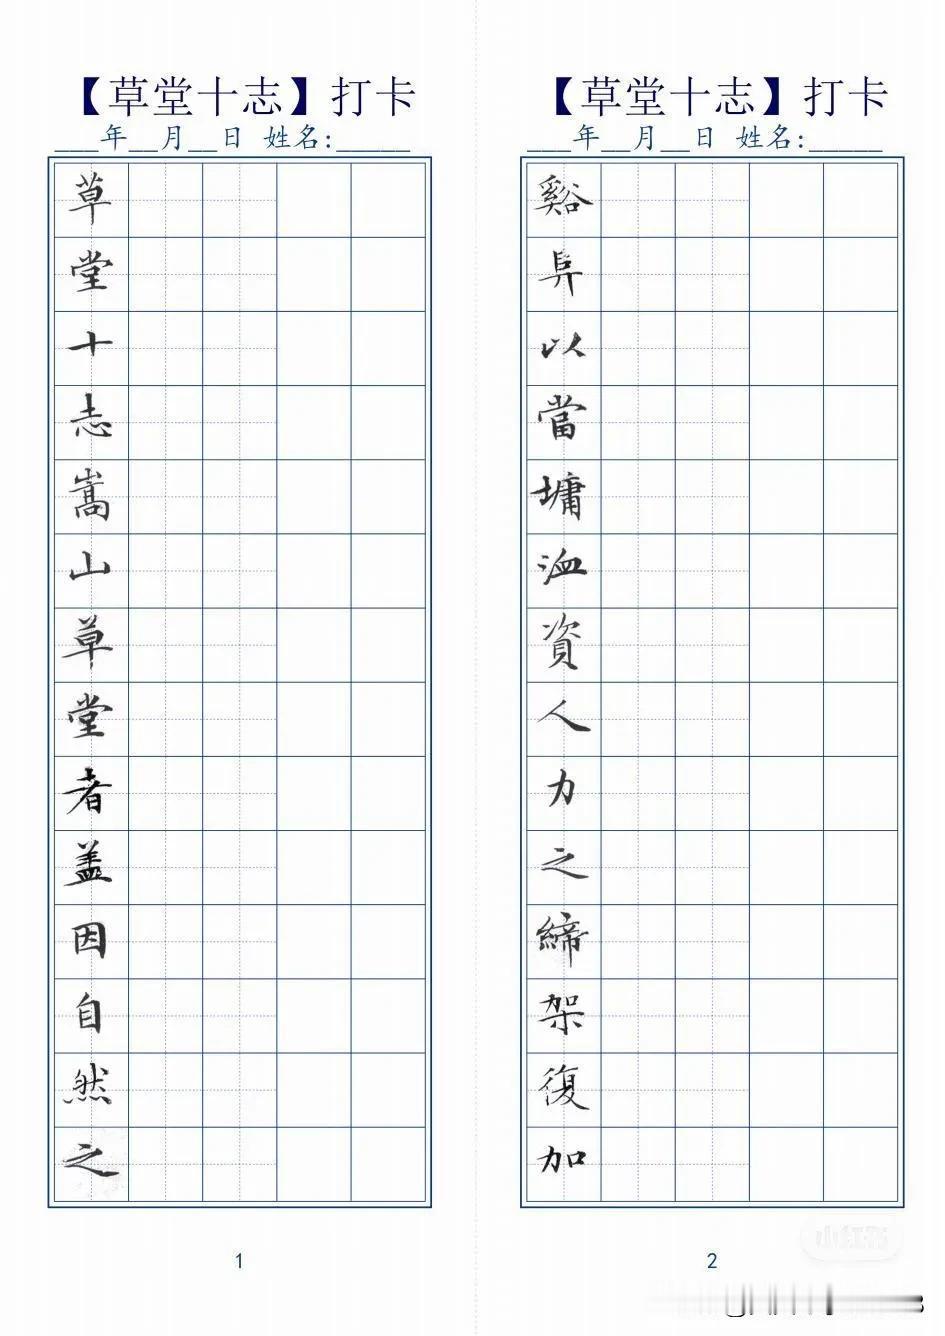 【草堂十志】打卡
___年__月__日 姓名:_____
草
堂
十
志
嵩
山
草
堂
者
盖
因
自
然
之
1
【草堂十志】打卡
___年__月__日 姓名:_____
谿
阜
以
當
墉
洫
資
人
力
之
締
架
復
加
2
小红书